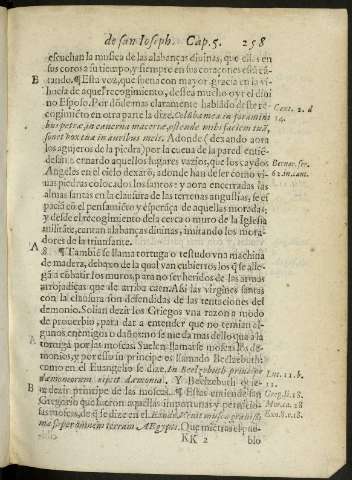 de san Ioseph. Cap. 5. 258
escuchan la musica de las alabanças diuinas, que ellas en
sus coros a su tiempo, y siempre en sus coraçones está cã-
B tando. ¶ Esta voz, que suena con mayor gracia en la vi-
huela de aquel recogimiento, dessea mucho oyr el diui
no Esposo. Por dõde mas claramente hablãdo deste re-
cogimiẽto en otra parte la dize. Columba mea in foramini
bus petræ, in cauerna maceriæ, ostende mihi faciem tuã,
sonet vox tua in auribus meis. Adonde (dexando aora
los agujeros de la piedra) por la cueua de la pared entiẽ-
de san Bernardo aquellos lugares vazios, que los caydos
Angeles en el cielo dexarõ; adonde han de ser como vi-
uas piedras colocados los santos: y aora encerradas las
almas santas en la clausura de las terrenas angustias, se es
pacia cõ el pensamiẽto y esperãça de aquellas moradas;
y desde el recogimiento desta cerca o muro de la Iglesia
militãte, cantan alabanças diuinas, imitando los mora-
dores de la triunfante.
Cant. 2. d
14.
Bernar. ser.
62. in cant.
A 8. ¶ Tambiẽ se llama tortuga o testudo vna machina
de madera, debaxo de la qual van cubiertos los q̃ se alle-
gã a cõbatir los muros, para no ser heridos de las armas
arrojadiças que de arriba caen. Assi las virgines santas
con la clausura son defendidas de las tentaciones del
demonio. Solian dezir los Griegos vna razon a modo
de prouerbio, para dar a entender que no temian al-
gunos enemigos o daños
tortuga por las moscas. Suelen llamarse moscas los de-
monios, y por esso su principe es llamado Beelzebuth;
como en el Euangelio se dize. In Beelzebuth principe
dæmoniorum eijcit dæmonia. Y Beelzebuth quie-
B re dezir principe de las moscas. ¶ Estas entiende san
Gregorio que fueron aquellas importunas y pernicio-
sas moscas, de q̃ se dize en el Exodo, Venit musca grauissi
ma per omnem terram AEgypti. Que mientras el pue-
Luc. 11. b.
Greg. li. 18.
Mor. ca. 28
Exo. 8. v. 18.
KK 2 blo